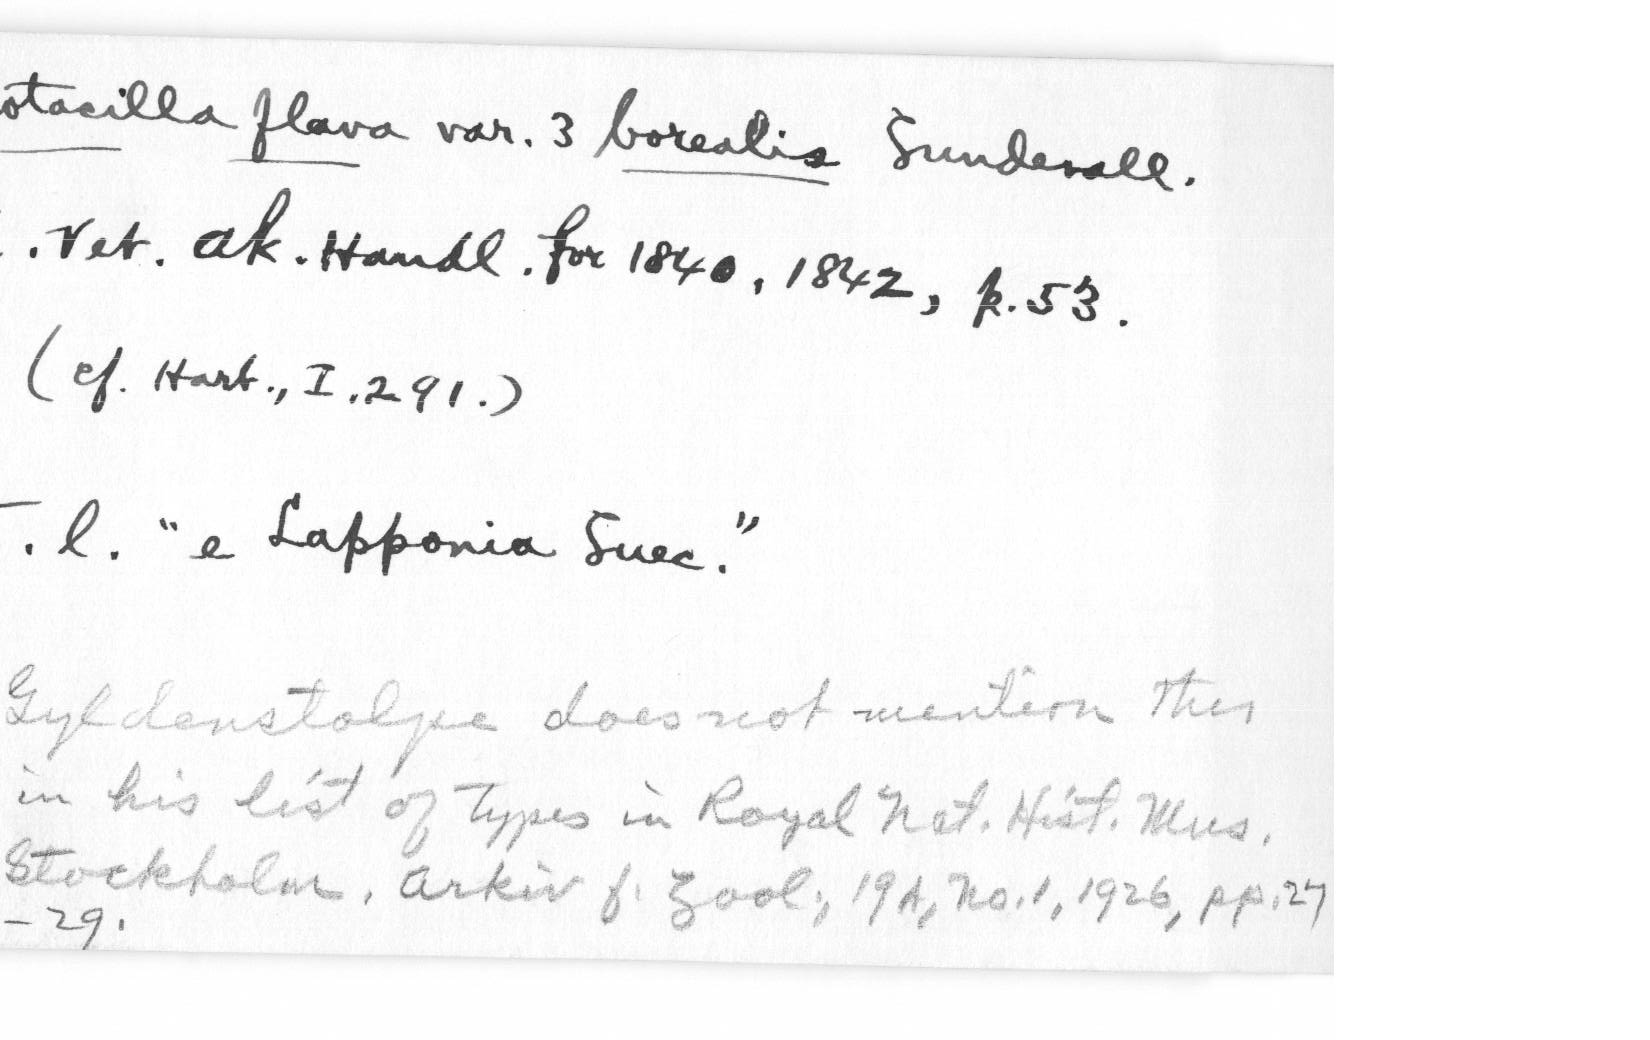 otacilla flava var. 3 borealis Sundevall.
. Vet. Ak. Handl. for 1840, 1842, p. 53.
(cf. Hart., I. 291.)
. l. "e Lapponia Suec."
Gyldenstolpe does not mention this
in his list of types in Royal Nat. Hist. Mus.
Stockholm. Arkiv f. Zool., 19A, No. 1, 1926, pp. 27
-29.